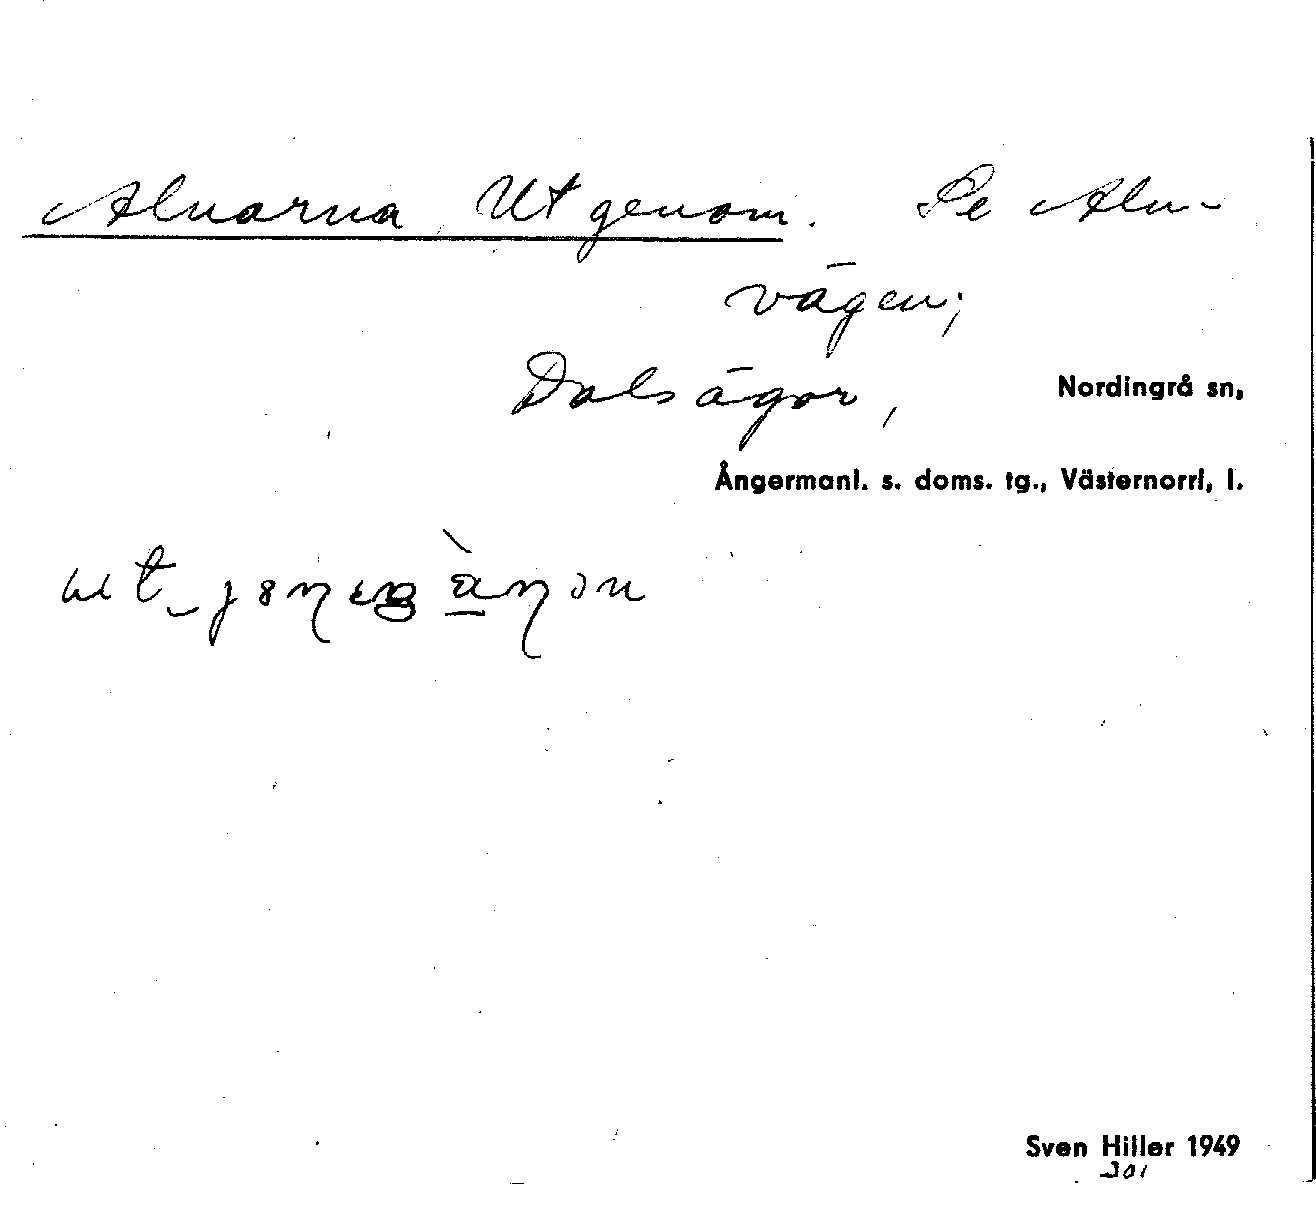 Alnarna, Ut genom. Se Aln-
vägen;
Dals ägor, Nordingrå sn,
Ångermanl. s. doms. tg., Västernorrl, l.
Sven Hiller 1949